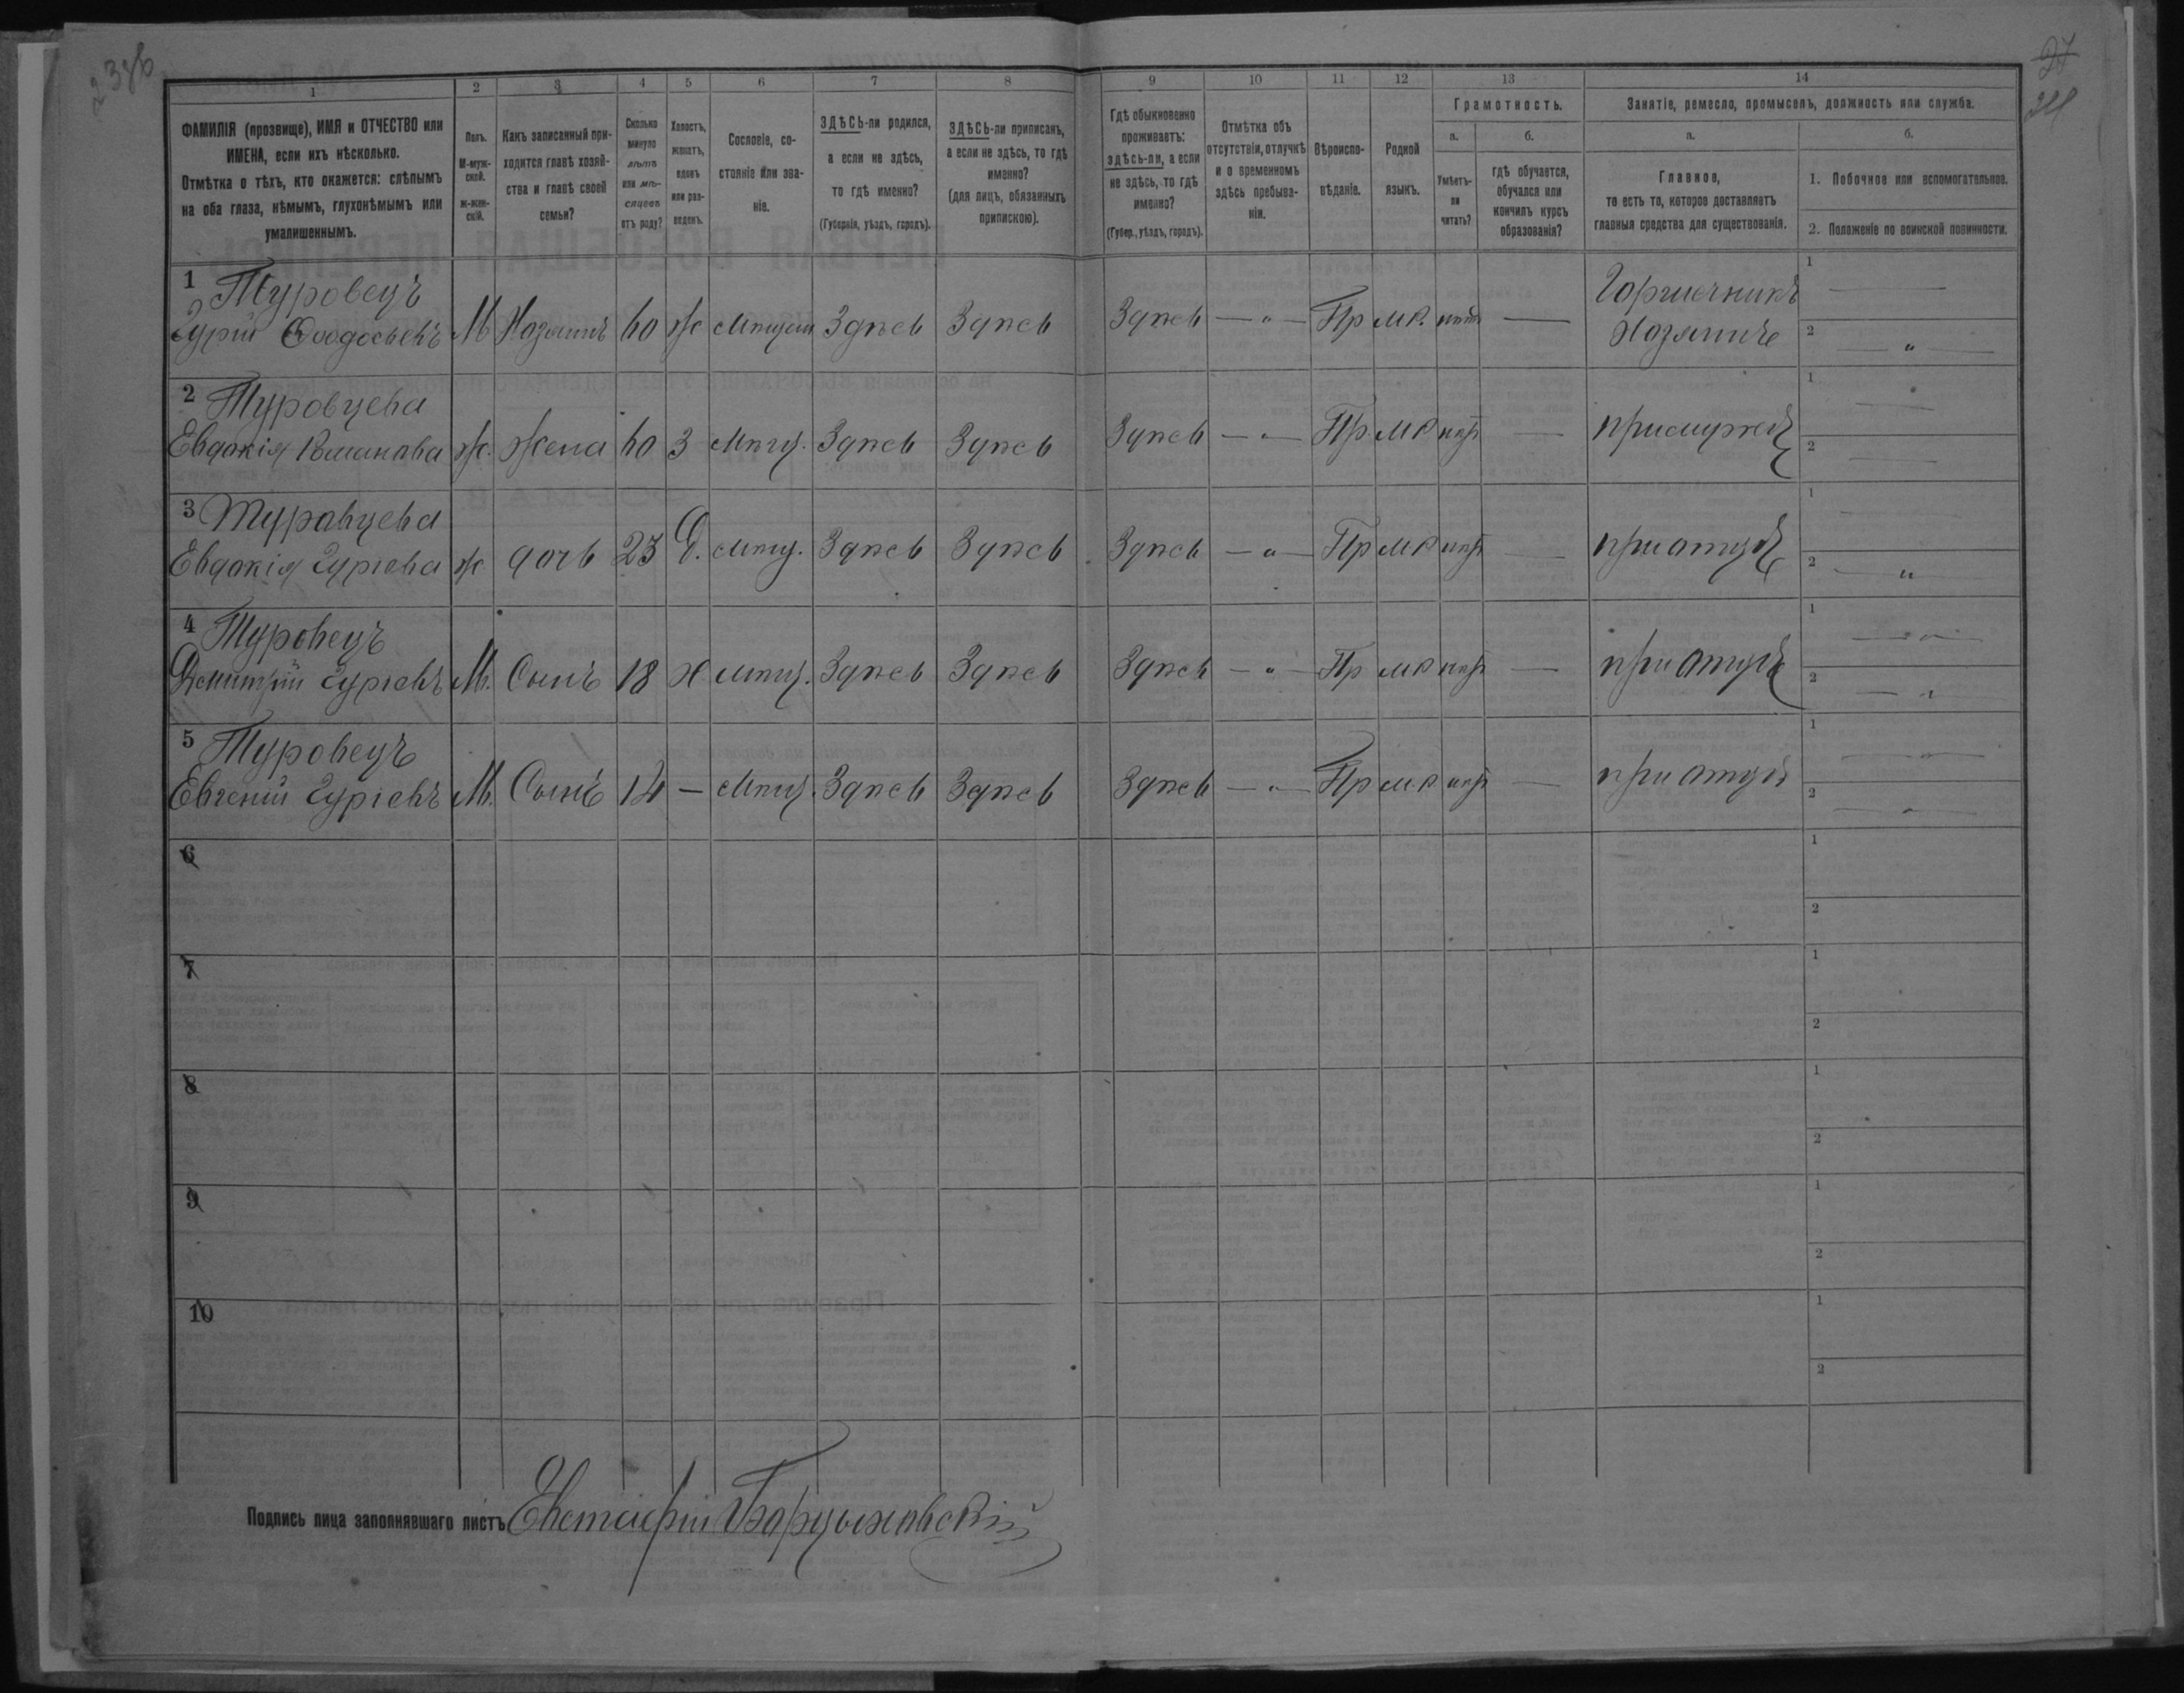 238об
27
1 2 3 4 5 6 7 8 9 10 11 12 13 14
ФАМИЛІЯ (прозвище), ИМЯ и ОТЧЕСТВО или
ИМЕНА, если ихъ нѣсколько.
Отмѣтка о тѣхъ, кто окажется: слѣпымъ
на оба глаза, нѣмымъ, глухонѣмымъ или
умалишеннымъ.
Полъ.
М-муж-
ской.
ж-жен-
скій.
Какъ записанный при-
ходится главѣ хозяй-
ства и главѣ своей
семьи?
Сколько
минуло
лѣтъ
или мѣ-
сяцевъ
отъ роду?
Холостъ,
женатъ,
вдовъ
или раз-
веденъ.
Сословіе, со-
стояніе или зва-
ніе.
ЗДѢСЬ-ли родился,
а если не здѣсь,
то гдѣ именно?
(Губернія, уѣздъ, городъ).
ЗДѢСЬ-ли приписанъ,
а если не здѣсь, то гдѣ
именно?
(для лицъ, обязанныхъ
припискою).
Гдѣ обыкновенно
проживаетъ:
здѣсь-ли, а если
не здѣсь, то гдѣ
именно?
(Губер., уѣздъ, городъ).
Отмѣтка объ
отсутствіи, отлучкѣ
и о временномъ
здѣсь пребыва-
ніи.
Вѣроиспо-
вѣданіе.
Родной
языкъ.
Грамотность.
а. б.
Умѣетъ-
ли
читать?
гдѣ обучается,
обучался или
кончилъ курсъ
образованія?
Занятіе, ремесло, промыселъ, должность или служба.
а. б.
Главное,
то есть то, которое доставляетъ
главныя средства для существованія.
1. Побочное или вспомогательное.
2. Положеніе по воинской повинности.
1 Туровецъ
Гурій Ѳеодосьевъ М Хозяинъ 60 Ж Мѣщан Здѣсь Здѣсь Здѣсь — " — Пр м.р. нѣтъ — Горшечникъ 1 —
Хозяинъ 2 — " —
2 Туровцева 1 —
Евдокія Романова ж. жена 60 З Мѣщ. Здѣсь Здѣсь Здѣсь — " — Пр. м р нѣт — при мужѣ 2 —
3 Туровцева 1 —
Евдокія Гуріева ж дочь 23 Д. мѣщ. Здѣсь Здѣсь Здѣсь — " — Пр м р нѣт — при отцѣ 2 — " —
4 Туровецъ 1 — " —
Дмитрій Гуріевъ М. Сынъ 18 Х мѣщ. Здѣсь Здѣсь Здѣсь — " — Пр м р нѣт — при отцѣ 2 — " —
5 Туровецъ 1 — " —
Евгений Гуріевъ М. Сынъ 14 — Мѣщ. Здѣсь Здѣсь Здѣсь — " — Пр м.р нѣт — при отцѣ 2 — " —
6 1
2
7 1
2
8 1
2
9 1
2
10 1
2
Подпись лица заполнявшаго листъ